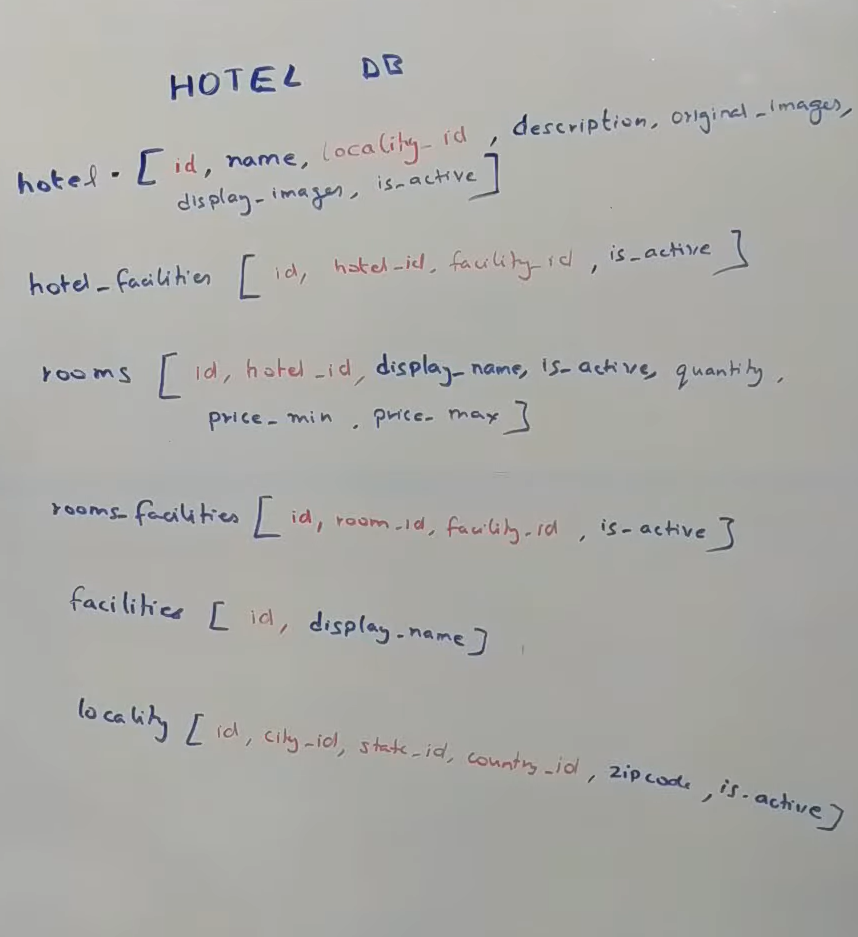 HOTEL DB
hotel . [ id, name, locality_id , description, original_images,
display_images, is_active ]
hotel_facilities [ id, hotel_id, facility_id , is_active ]
rooms [ id, hotel_id, display_name, is_active, quantity,
price_min , price_max ]
rooms_facilities [ id, room_id, facility_id , is_active ]
facilities [ id, display_name ]
locality [ id, city_id, state_id, country_id , zipcode , is_active ]